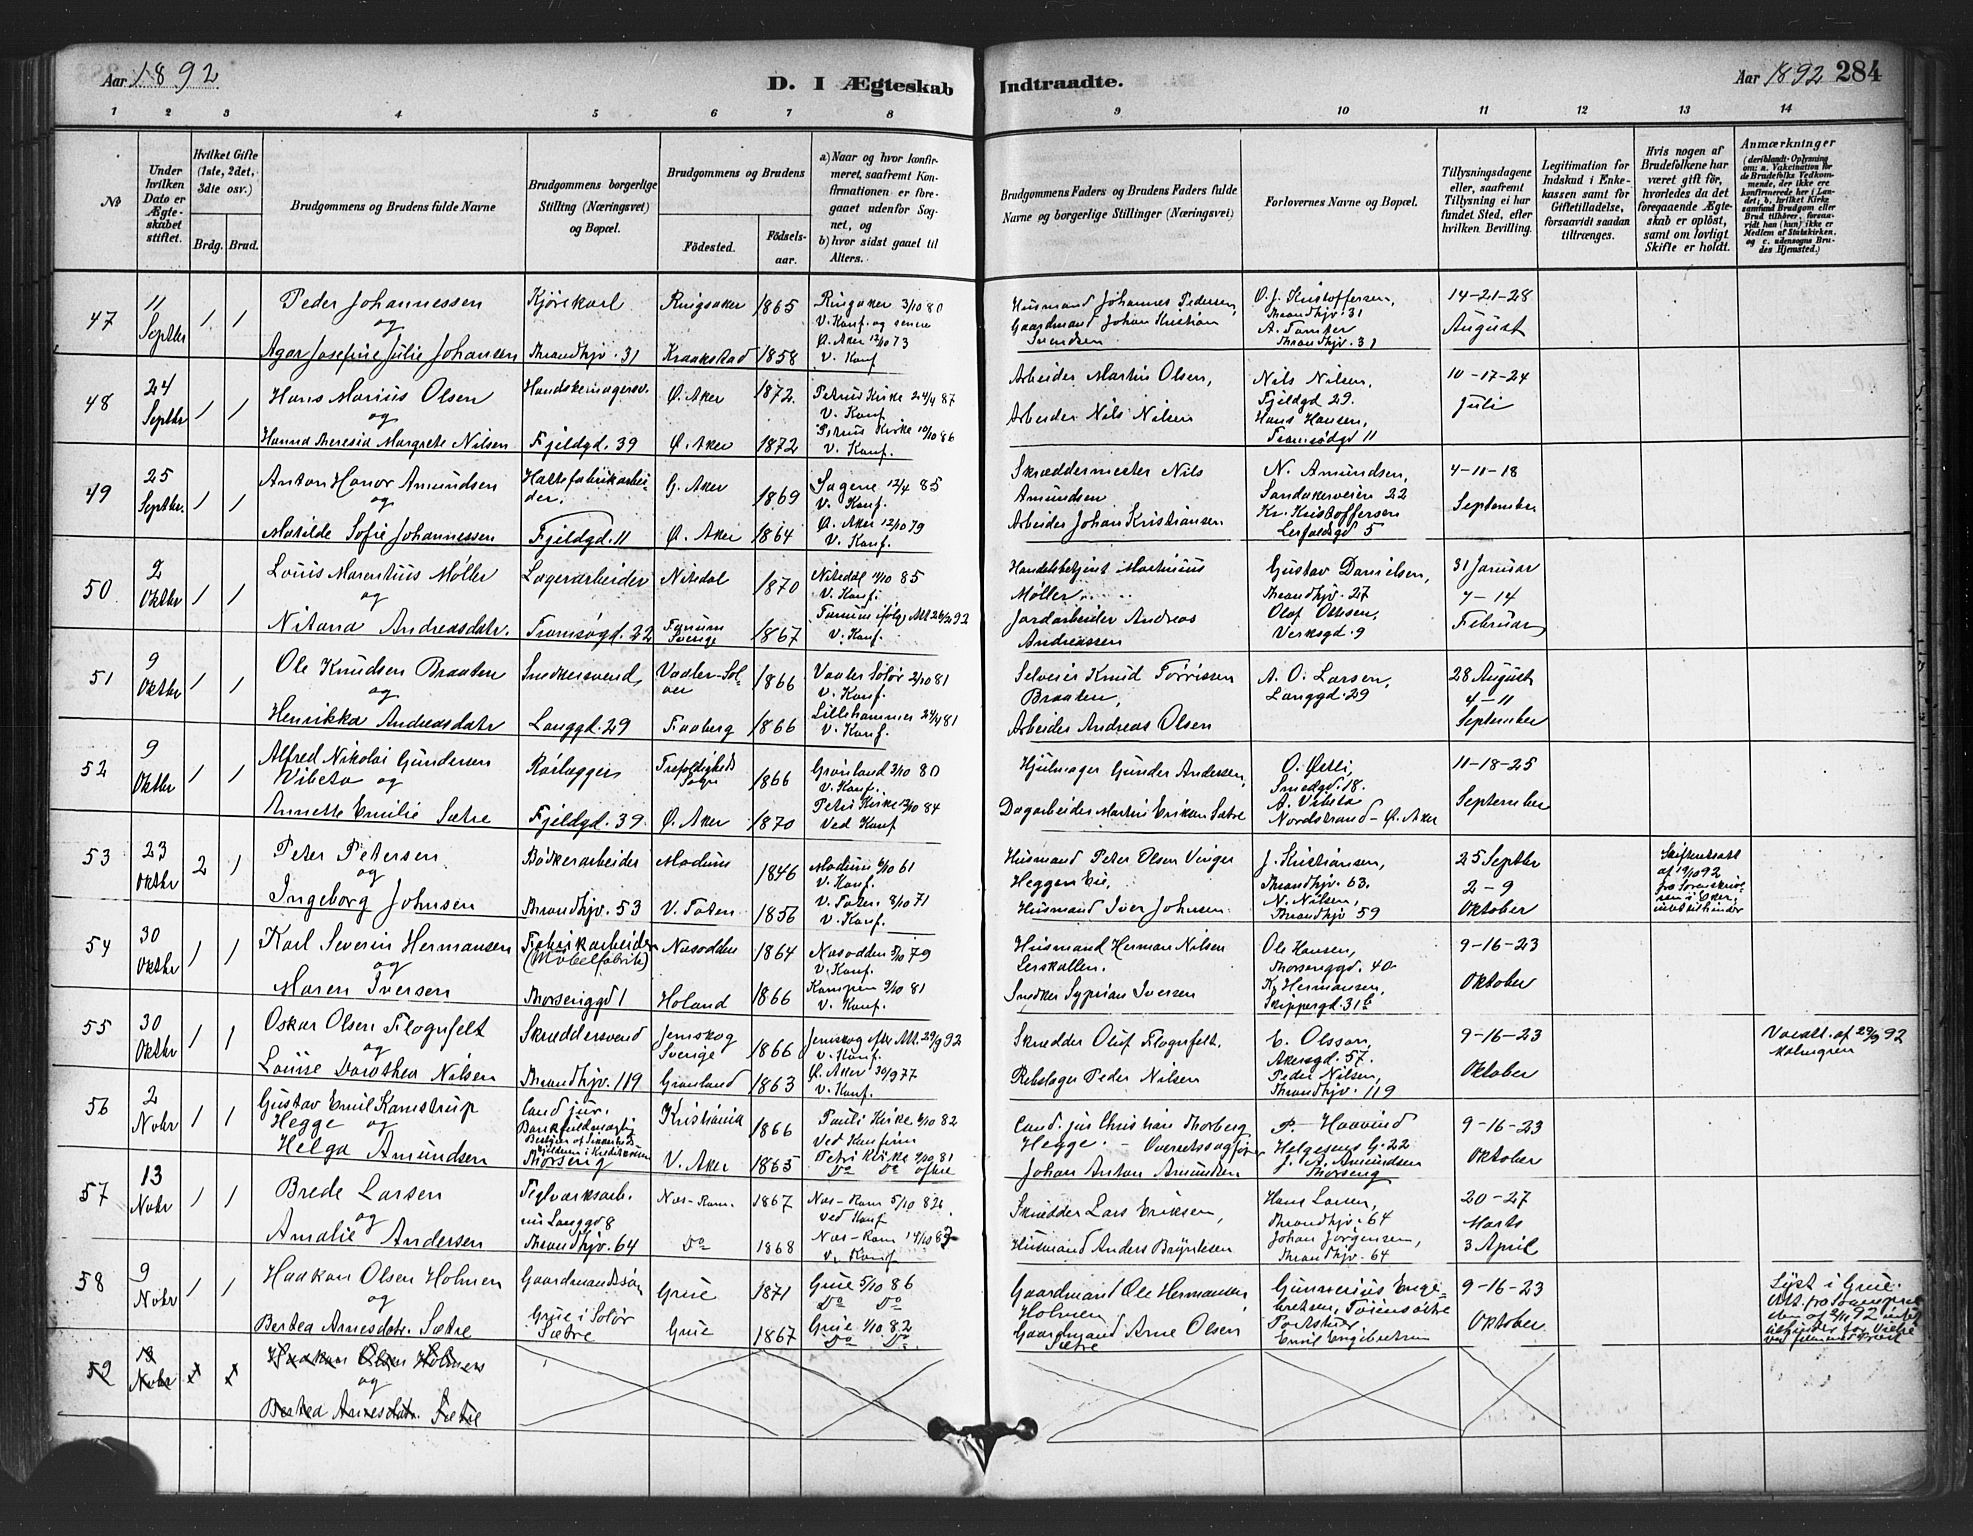 Aar 1892
D. I Ægteskab Indtraadte.
Aar 1892 284
1 2 3 4 5 6 7 8 9 10 11 12 13 14
No
Under hvilken Dato er Ægteskabet stiftet.
Hvilket Gifte (1ste, 2det, 3die osv.)
Brdg. Brud.
Brudgommens og Brudens fulde Navne
Brudgommens borgerlige Stilling (Næringsvei) og Bopæl.
Brudgommens og Brudens
Fødested. Fødselsaar.
a) Naar og hvor konfirmeret, saafremt Konfirmationen er foregaaet udenfor Sognet, og
b) hvor sidst gaaet til Alters.
Brudgommens Faders og Brudens Faders fulde Navne og borgerlige Stillinger (Næringsvei)
Forlovernes Navne og Bopæl.
Tillysningsdagene eller, saafremt Tillysning ei har fundet Sted, efter hvilken Bevilling.
Legitimation for Indskud i Enkekassen samt for Giftetilladelse, forsaavidt saadan tiltrænges.
Hvis nogen af Brudefolkene har været gift før, hvorledes da det foregaaende Ægteskab er opløst, samt om lovligt Skifte er holdt.
Anmærkninger
(deriblandt Oplysning om: a. Vakcination for de Brudefolks Vedkommende, der ikke ere konfirmerede her i Landet; b. hvilket Kirkesamfund Brudgom eller Brud tilhører, forsaavidt han (hun) ikke er Medlem af Statskirken, og c. udensogns Brudes Hjemsted.)
47 11 Septbr 1 1
Peder Johannessen
og
Agar Josefine Julie Johansen
Kjørekarl
Throndhjv. 31
Ringsaker 1865
Kraakstad 1858
Ringsaker 3/10 80
V. Konf. og senere
Ø. Aker 12/10 73
V. Konf
Husmand Johannes Pedersen,
Gaardmand Johan Kristian
Svendsen
O. J. Kristoffersen,
Throndhjv. 31
A. Tomter
Throndhjv. 31
14-21-28
August
48 24 Septbr 1 1
Hans Marius Olsen
og
Hanna Theresia Margrete Nilsen
Handskemagersv.
Fjeldgd. 39
Ø. Aker 1872.
Ø. Aker 1872
Petrus Kirke 24/4 87
V. Konf
Petrus Kirke 10/10 86
V. Konf.
Arbeider Martin Olsen,
Arbeider Nils Nilsen
Nils Nilsen,
Fjeldgd 29.
Hans Hansen,
Tromsøgd 11
10-17-24
Juli
49 25 Septbr. 1 1
Anton Honor Amundsen
og
Matilde Sofie Johannessen
Hattefabrikarbeider.
Fjeldgd. 11
G. Aker 1869
Ø. Aker 1864
Sagene 12/4 85
V. Konf.
Ø. Aker 12/10 79
V. Konf.
Skræddermester Nils
Amundsen
Arbeider Johan Kristiansen
N. Amundsen,
Sandakerveien 22
Kr. Kristoffersen
Lerfaldsgd 5
4-11-18
September
50 2 Oktbr 1 1
Louis Marentius Møller
og
Nitana Andreasdatr.
Lagerarbeider
Tromsøgd. 22
Nitedal 1870
Sverige 1867
Nitedal 11/10 85
V. Konf.
V. Konf.
Handelsbetjent Martinius
Møller
Jordarbeider Andreas
Andreassen
Gustav Danielsen,
Throndhjv. 27
Olaf Olsen,
Verksgd. 9
31 Januar
7-14
Februar
51 9 Oktbr 1 1
Ole Knudsen Braaten
og
Henrikka Andreasdatr
Snedkersvend
Langgd. 29
Vaaler-Solør 1866
Faaberg 1866
Vaaler Solør 2/10 81
V. Konf.
Lillehammer 24/4 81
V. Konf.
Selveier Knud Torrissen
Braaten,
Arbeider Andreas Olsen
A. O. Larsen,
Langgd. 29
28 August
4-11
September
52 9 Oktbr 1 1
Alfred Nikolai Gundersen
Vibeto og
Annette Emilie Sætre
Rørlægger
Fjeldgd. 39.
Trefoldigheds Sogn 1866
Ø. Aker 1870
Grønland 3/10 80
V. Konf.
Petri Kirke 12/10 84
Ved Konf
Hjulmager Gunder Andersen,
Dagarbeider Martin Eriksen Sætre
O. Østli,
Smedgd. 18.
A. Vibeto
Nordstrand - Ø. Aker
11-18-25
September
53 23 Oktbr 2 1
Peter Petersen
og
Ingeborg Johnsen
Bødkerarbeider
Throndhjv. 53
Modum 1846
V. Toten 1856
Modum 6/10 61
V. Konf.
V. Toten. 8/10 71
V. Konf.
Husmand Peter Olsen Vinger
Heggen Eie,
Husmand Iver Johnsen
J. Kristiansen,
Throndhjv. 63.
N. Nilsen,
Throndhjv 59
25 Septbr
2-9
Oktober
Skifteattest
af 19/10 92
fra Sorenskriveren i Eker,
intet til hinder
54 30 Oktbr 1 1
Karl Severin Hermansen
og
Maren Iversen
Fabrikarbeider
(Møbelfabrik)
Thorsenggd 1
Næsodden 1864
Høland 1866
Næsodden 5/10 79
V. Konf.
Kampen 9/10 81
V. Konf.
Husmand Herman Nilsen
Lerskallen.
Snedker Syprian Iversen
Ole Hansen,
Thorsenggd. 40
K. Hermansen,
Skippergd. 31 b
9-16-23
Oktober
55 30 Oktbr 1 1
Oskar Olsen Flognfelt
og
Louise Dorothea Nilsen
Skræddersvend
Throndhjv. 119
Jernskog Sverige 1866
Grønland 1863
Jernskog efter Att. 29/9 92
V. Konf.
Ø. Aker 30/9 77
V. Konf.
Skrædder Oluf Flognfelt.
Rebslager Peder Nilsen
E. Olsson,
Akersgd. 57.
Peder Nilsen,
Throndhjv. 119
9-16-23
Oktober
Vacatt. af 29/9 92
Malmgren
56 2 Novbr 1 1
Gustav Emil Kamstrup
Hegge og
Helga Amundsen
Cand. jur.
Thorseng
Kristiania 1866
V. Aker 1865
Pauli Kirke 8/10 82
Ved Konfirm
Petri Kirke 9/10 81
Do Do oftere
Cand. jur. Christian Thorberg
Hegge. - Overretssagfører
Johan Anton Amundsen
P. Haavind
Helgesens G. 22
J. A. Amundsen
Thorseng
9-16-23
Oktober
57 13 Novbr 1 1
Brede Larsen
og
Amalie Andersen
Teglværksarb.
Langgd 8
Throndhjv. 64
Næs-Rom. 1867
Do 1868
Næs-Rom 5/10 82
Ved Konf
Næs-Rom 14/10 83
V. Konf
Skrædder Lars Eriksen,
Husmand Anders Brynilsen
Hans Larsen,
Throndhjv. 64
Johan Jørgensen,
Throndhjv. 64
20-27
Marts
3 April
58 9 Novbr 1 1
Haakon Olsen Holmen
og
Berthea Arnesdatr. Sætre
Gaardmandssøn
Grue i Solør
Sætre
Grue 1871
Grue 1867
Grue 5/10 86
Do Do
Grue 1/10 82
Do Do
Gaardmand Ole Hermansen
Holmen
Gaardmand Arne Olsen
Sætre
Gunnerius Engebretsen, Tøiensgate
Emil Engebretsen
9-16-23
Oktober
Lyst i Grue.
Att. fra Sognepresten af 2/11 92 intet
59 13 Novbr 1 1
Haakon Olsen Holmen
og
Berthea Arnesdatr. Sætre